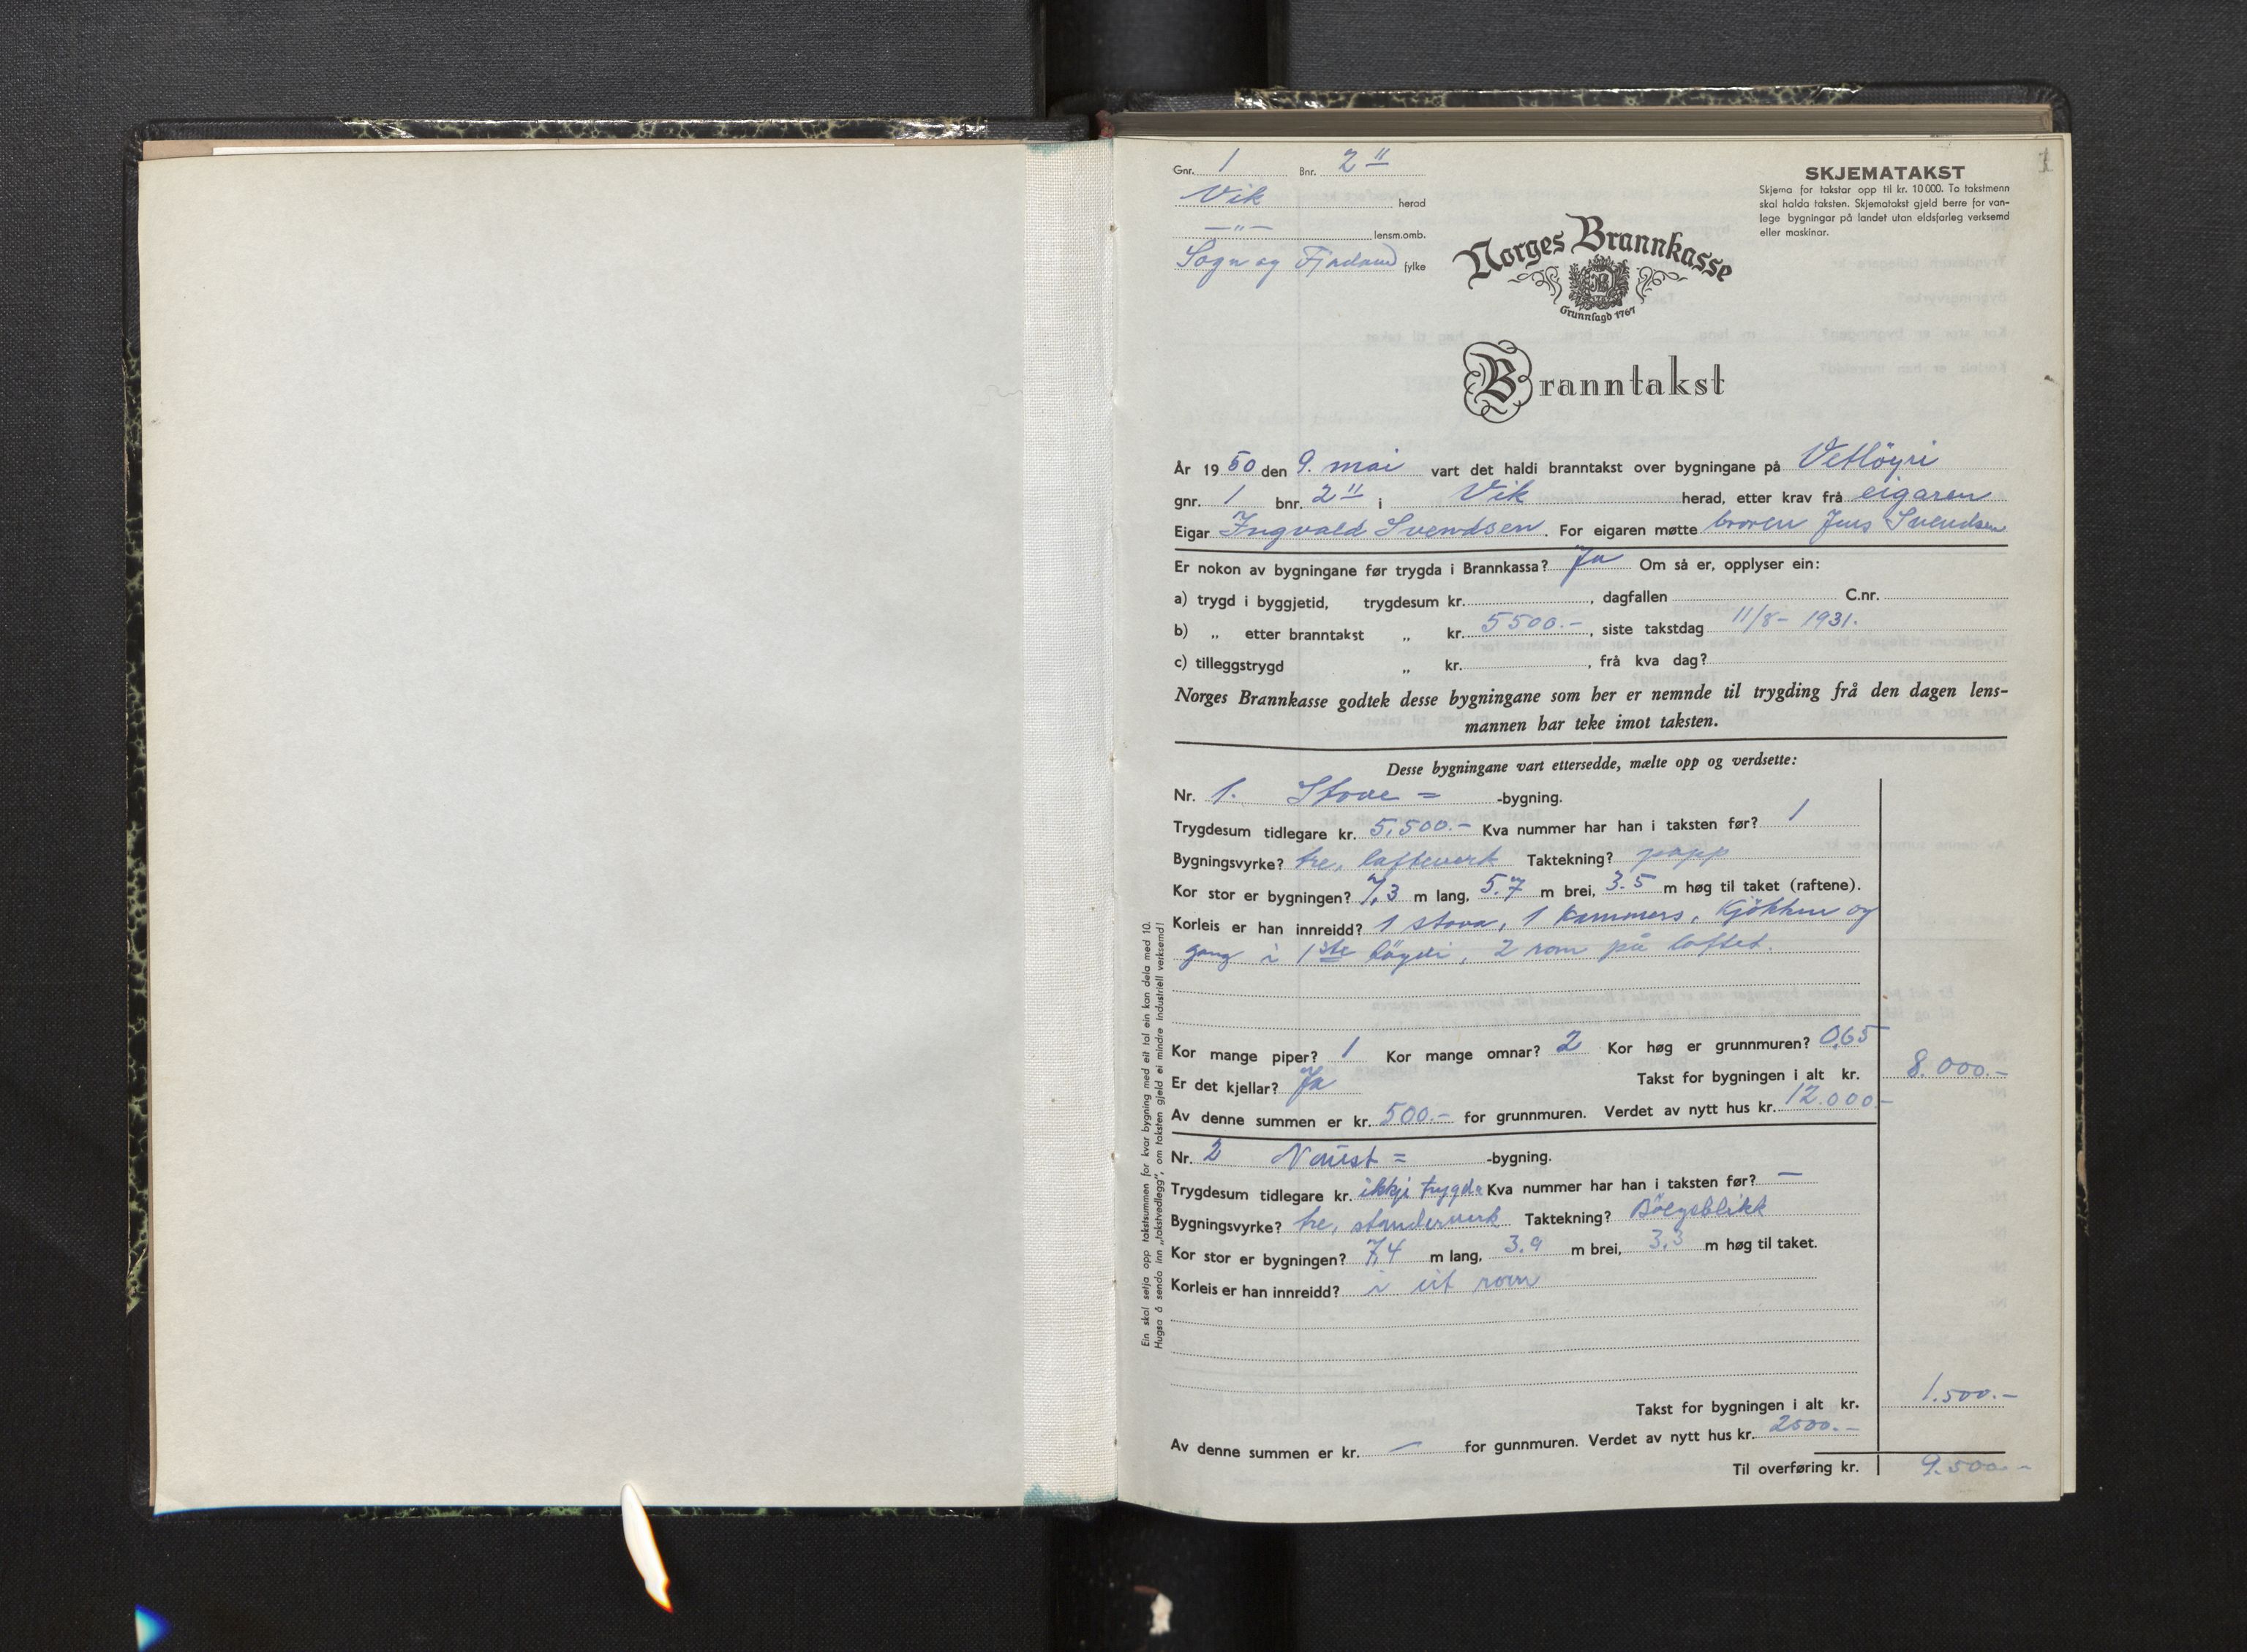 1
Gnr. 1 Bnr. 2 "
Vik herad
—"— lensm.omb.
Sogn og Fjordane fylke
SKJEMATAKST
Skjema for takstar opp til kr. 10 000. To takstmenn
skal halda taksten. Skjematakst gjeld berre for van-
lege bygningar på landet utan eldsfarleg verksemd
eller maskinar.
Norges Brannkasse
Grunnlagd 1767
Branntakst
År 1950 den 9. mai vart det haldi branntakst over bygningane på Vetløyri
gnr. 1 bnr. 2 " i Vik herad, etter krav frå eigaren
Eigar Ingvald Svendsen. For eigaren møtte broren Jens Svendsen
Er nokon av bygningane før trygda i Brannkassa? Ja Om så er, opplyser ein:
a) trygd i byggjetid, trygdesum kr. , dagfallen C.nr.
b) „ etter branntakst „ kr. 5500.-, siste takstdag 11/8- 1931.
c) tilleggstrygd „ kr. , frå kva dag?
Norges Brannkasse godtek desse bygningane som her er nemnde til trygding frå den dagen lens-
mannen har teke imot taksten.
Desse bygningane vart ettersedde, mælte opp og verdsette:
Nr. 1. Stove = -bygning.
Trygdesum tidlegare kr. 5.500.- Kva nummer har han i taksten før? 1
Bygningsvyrke? tre, lafteverk Taktekning? papp
Kor stor er bygningen? 7,3 m lang, 5.7 m brei, 3.5 m høg til taket (raftene).
Korleis er han innreidd? 1 stova, 1 kammers, kjøkken og
gang i 1ste høgdi, 2 rom på loftet.
Kor mange piper? 1 Kor mange omnar? 2 Kor høg er grunnmuren? 0,65
Er det kjellar? Ja Takst for bygningen i alt kr. 8.000.-
Av denne summen er kr. 500.- for grunnmuren. Verdet av nytt hus kr. 12.000.-
Nr. 2 Naust = -bygning.
Trygdesum tidlegare kr. ikkje trygda Kva nummer har han i taksten før? —
Bygningsvyrke? tre, stenderverk Taktekning? Bølgeblikk
Kor stor er bygningen? 7,4 m lang, 3.9 m brei, 3,3 m høg til taket.
Korleis er han innreidd? i eit rom
Takst for bygningen i alt kr. 1.500.-
Av denne summen er kr. — for gunnmuren. Verdet av nytt hus kr. 2500.-
Til overføring kr. 9.500.-
Ein skal setja opp takstsummen for kvar bygning med eit tal ein kan dela med 10.
Hugsa å senda inn „takstvedlegg", om taksten gjeld ei mindre industriell verksemd!